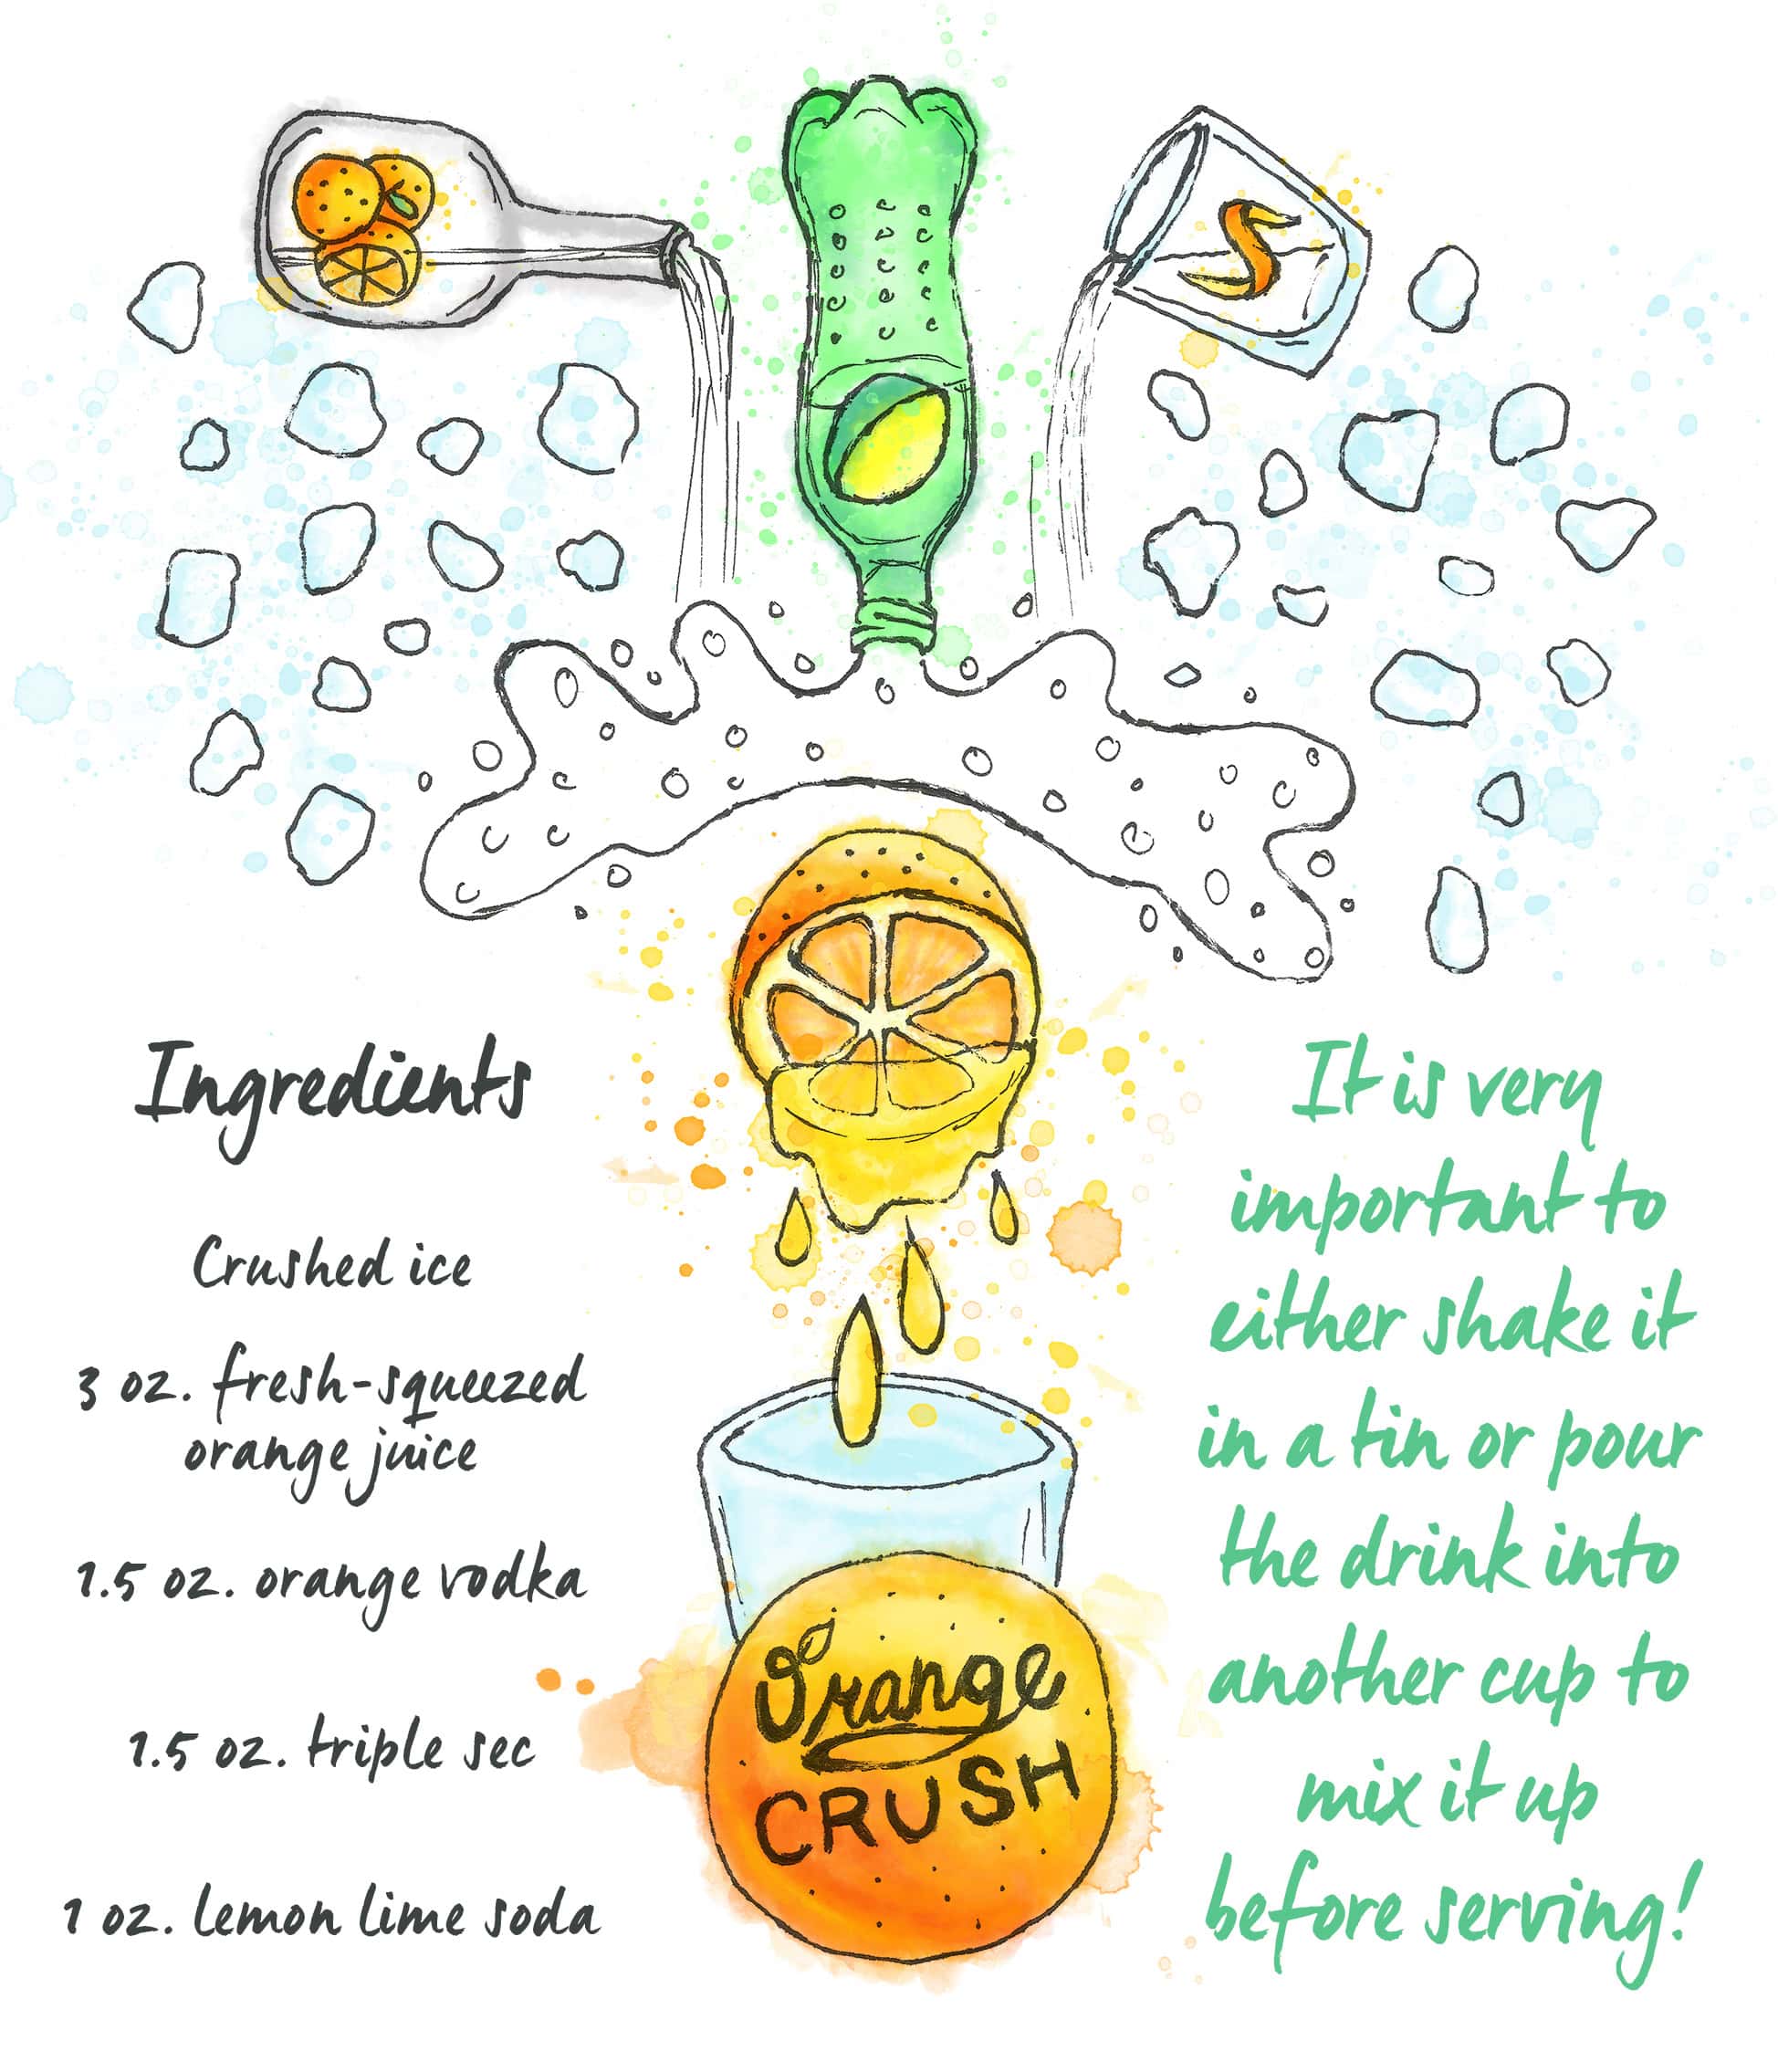 Ingredients
Crushed ice
3 oz. fresh-squeezed
orange juice
1.5 oz. orange vodka
1.5 oz. triple sec
1 oz. lemon lime soda
Orange
CRUSH
It is very
important to
either shake it
in a tin or pour
the drink into
another cup to
mix it up
before serving!